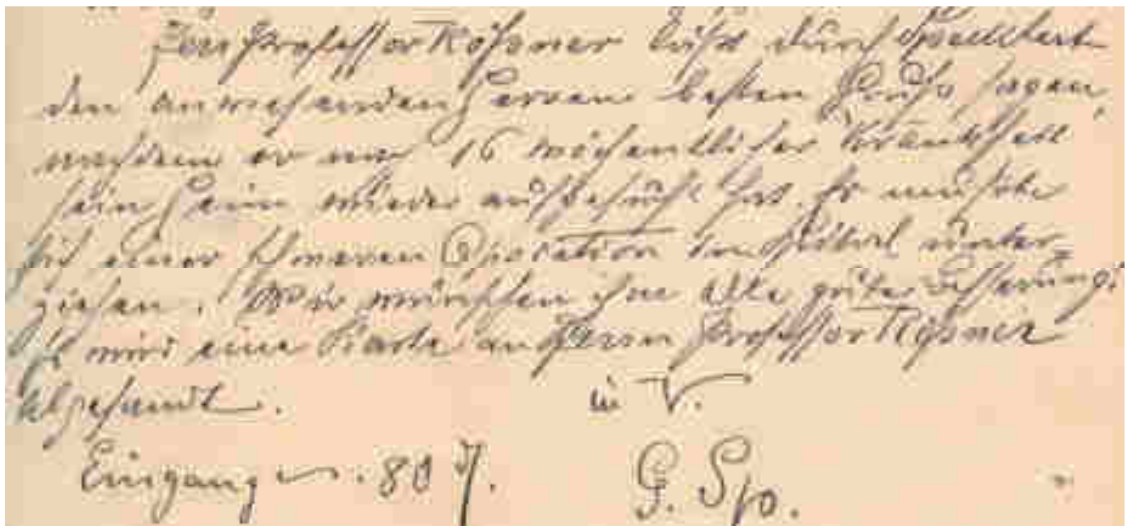 Herr Professor Rößner läßt durch Spechthart
den anwesenden Herren besten Gruß sagen,
nachdem er nach 16 wöchentlicher Krankheit
sein Heim wieder aufgesucht hat. Er mußte
sich einer schweren Operation im Spital unter-
ziehen. Wir wünschen ihm alle gute Besserung.
Es wird eine Karte an Herrn Professor Rößner
abgesandt. in V.
Eingang 80 G. Spo.